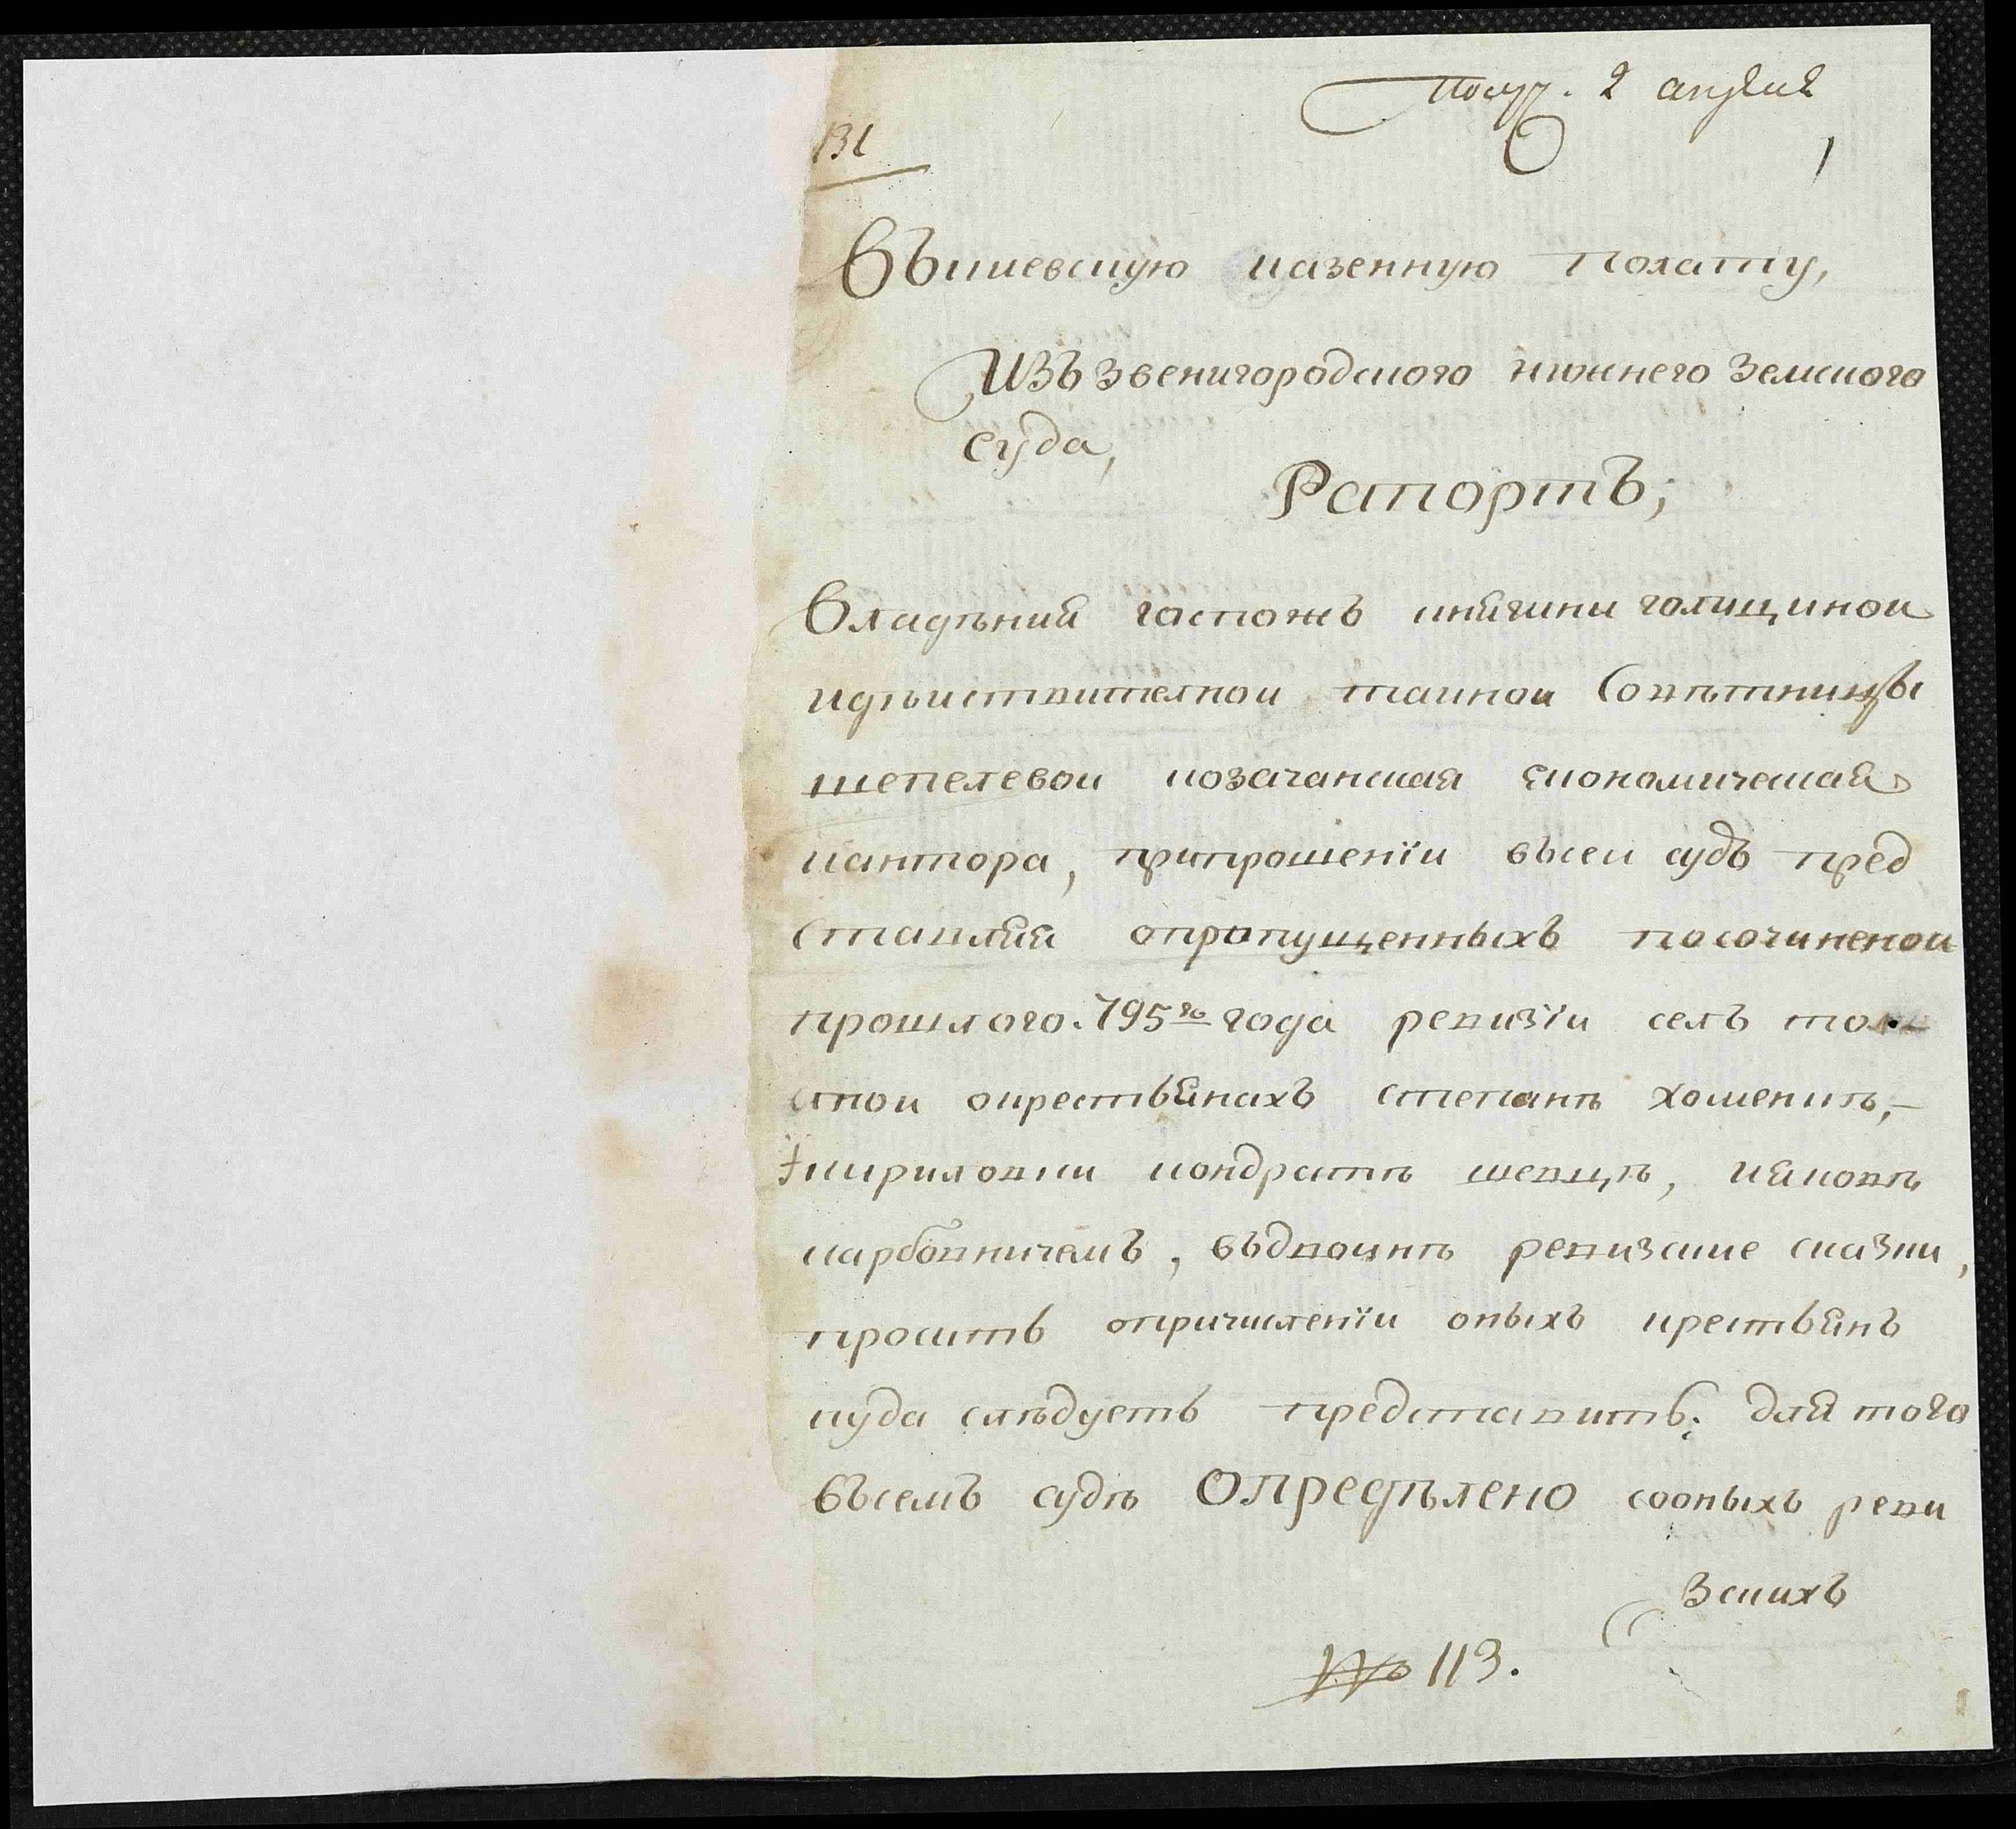 Получ. 2 апреля
131
1
Въкиевскую казенную полату,
Изъ звенигородского нижнего земского
суда,
Рапортъ;
Владѣния гаспожъ княгини голицинои
идѣиствителнои таинои Совѣтницы
шепелевои козачанская економическая
кантора, припрошенїи въсеи судъ пред
ставляя опропущенныхъ посочиненои
прошлого. 795го года ревизїи селъ тол
стои окрестьянахъ степанѣ хоменкѣ,
кириловки кондратѣ шевцѣ, ияковѣ
карбовничемъ, въдвоинѣ ревизские сказки,
проситъ опричисленїи оныхъ крестьянъ
куда слѣдуетъ представить; для того
Въсемъ судѣ Опредѣлено сооныхъ реви
зскихъ
№ 113.